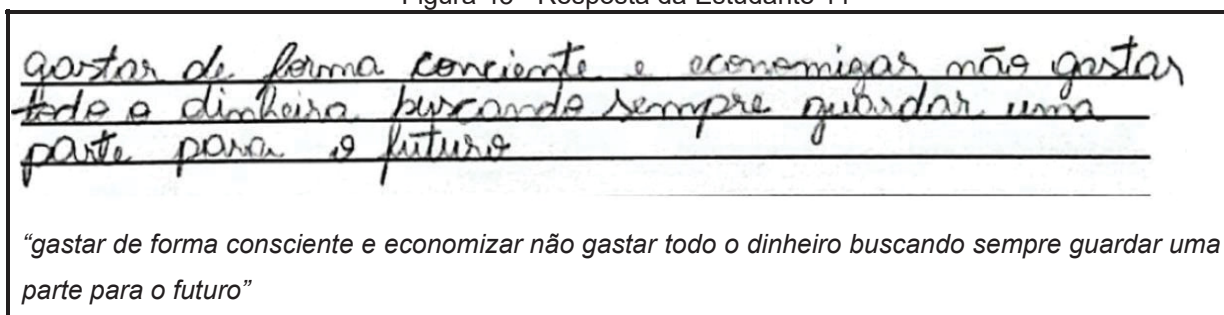 gastar de forma conciente e economizar não gastar
todo o dinheiro buscando sempre guardar uma
parte para o futuro
“gastar de forma consciente e economizar não gastar todo o dinheiro buscando sempre guardar uma
parte para o futuro”